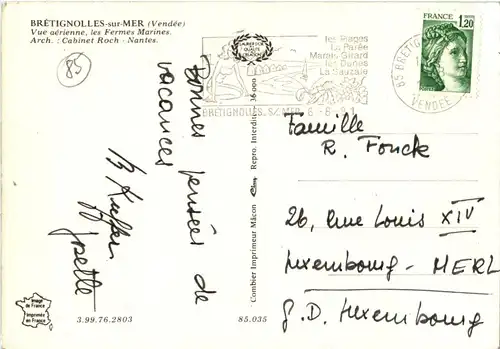 BRÉTIGNOLLES-sur-MER (Vendée)
Vue aérienne, les Fermes Marines.
Arch. : Cabinet Roch - Nantes.
85
Bonnes pensées de
vacances
Josette
Image
de France
Imprimée
en France
3.99.76.2803
85.035
Combier Imprimeur Mâcon
Repro. Interdite
36 000
les Plages
La Parée
Marais Girard
les Dunes
La Sauzaie
BRETIGNOLLES S/MER
FRANCE
1,20
POSTES
85 BRETIGN
VENDEE
Famille
R. Fonck
26, Rue Louis XIV
Luxembourg - MERL
G.D. Luxembourg